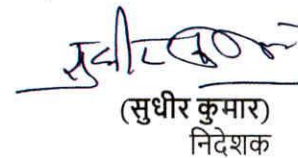 (सुधीर कुमार)
निदेशक